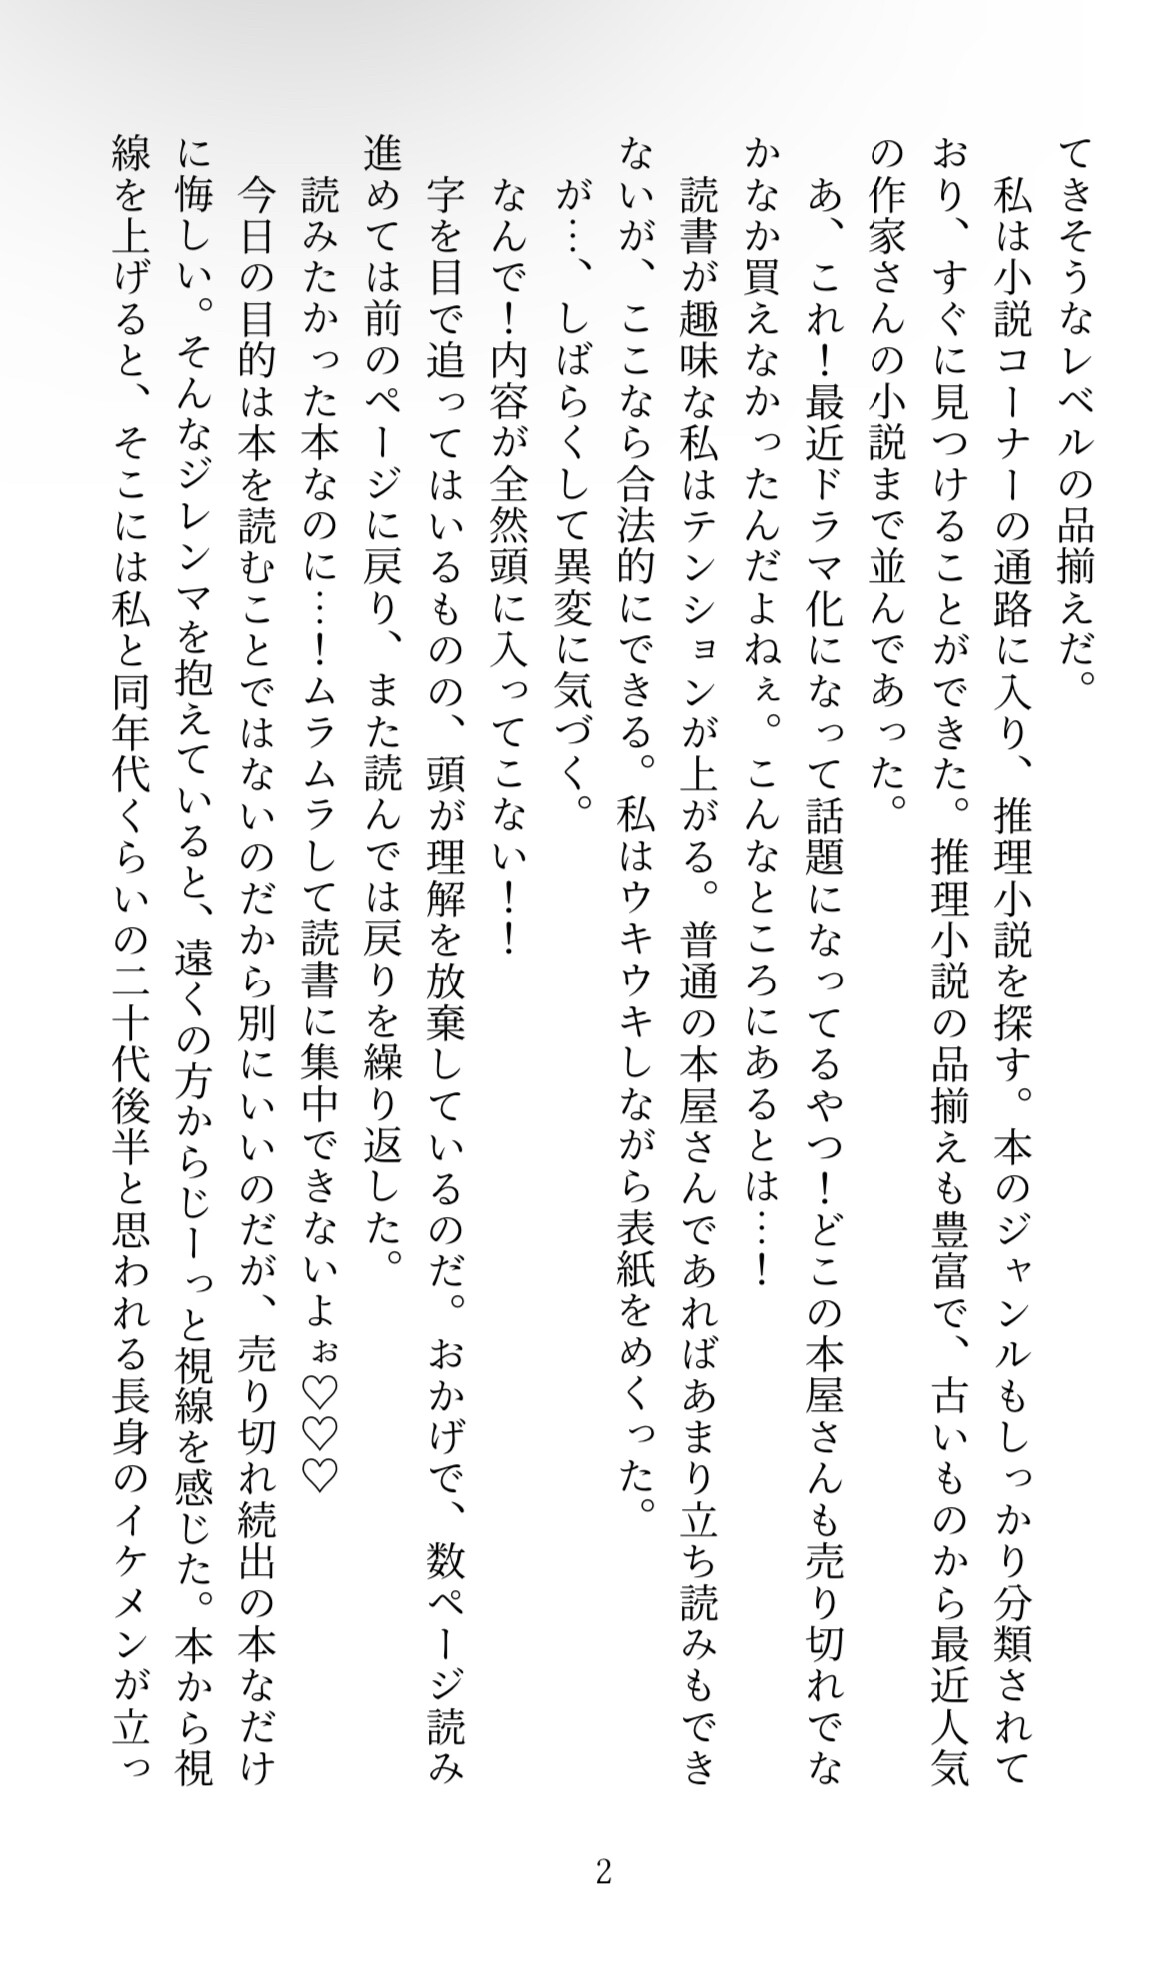 てきそうなレベルの品揃えだ。
　私は小説コーナーの通路に入り、推理小説を探す。本のジャンルもしっかり分類されて
おり、すぐに見つけることができた。推理小説の品揃えも豊富で、古いものから最近人気
の作家さんの小説まで並んであった。
　あ、これ！最近ドラマ化になって話題になってるやつ！どこの本屋さんも売り切れでな
かなか買えなかったんだよねぇ。こんなところにあるとは…！
　読書が趣味な私はテンションが上がる。普通の本屋さんであればあまり立ち読みもでき
ないが、ここなら合法的にできる。私はウキウキしながら表紙をめくった。
　が…、しばらくして異変に気づく。
　なんで！内容が全然頭に入ってこない！！
　字を目で追ってはいるものの、頭が理解を放棄しているのだ。おかげで、数ページ読み
進めては前のページに戻り、また読んでは戻りを繰り返した。
　読みたかった本なのに…！ムラムラして読書に集中できないよぉ♡♡♡
　今日の目的は本を読むことではないのだから別にいいのだが、売り切れ続出の本なだけ
に悔しい。そんなジレンマを抱えていると、遠くの方からじーっと視線を感じた。本から視
線を上げると、そこには私と同年代くらいの二十代後半と思われる長身のイケメンが立っ
2